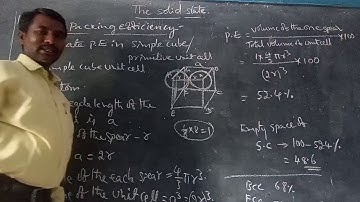 The solid state.
Packing efficiency-
ate P.E in simple cube/
primitive unit cell
mple cube unit cell
a = 2r
of the spear - r
e of the each spear = 4/3 πr³.
of the unit cell = a³ =
1/8 × 8 = 1
P.E = volume of the one spear
Total volume of unit cell × 100
= 1 × 4/3 πr³
(2r)³ × 100
= 52.4 %
Empty space of
S.C → 100 - 52.4
= 48.6
Bcc 68 %